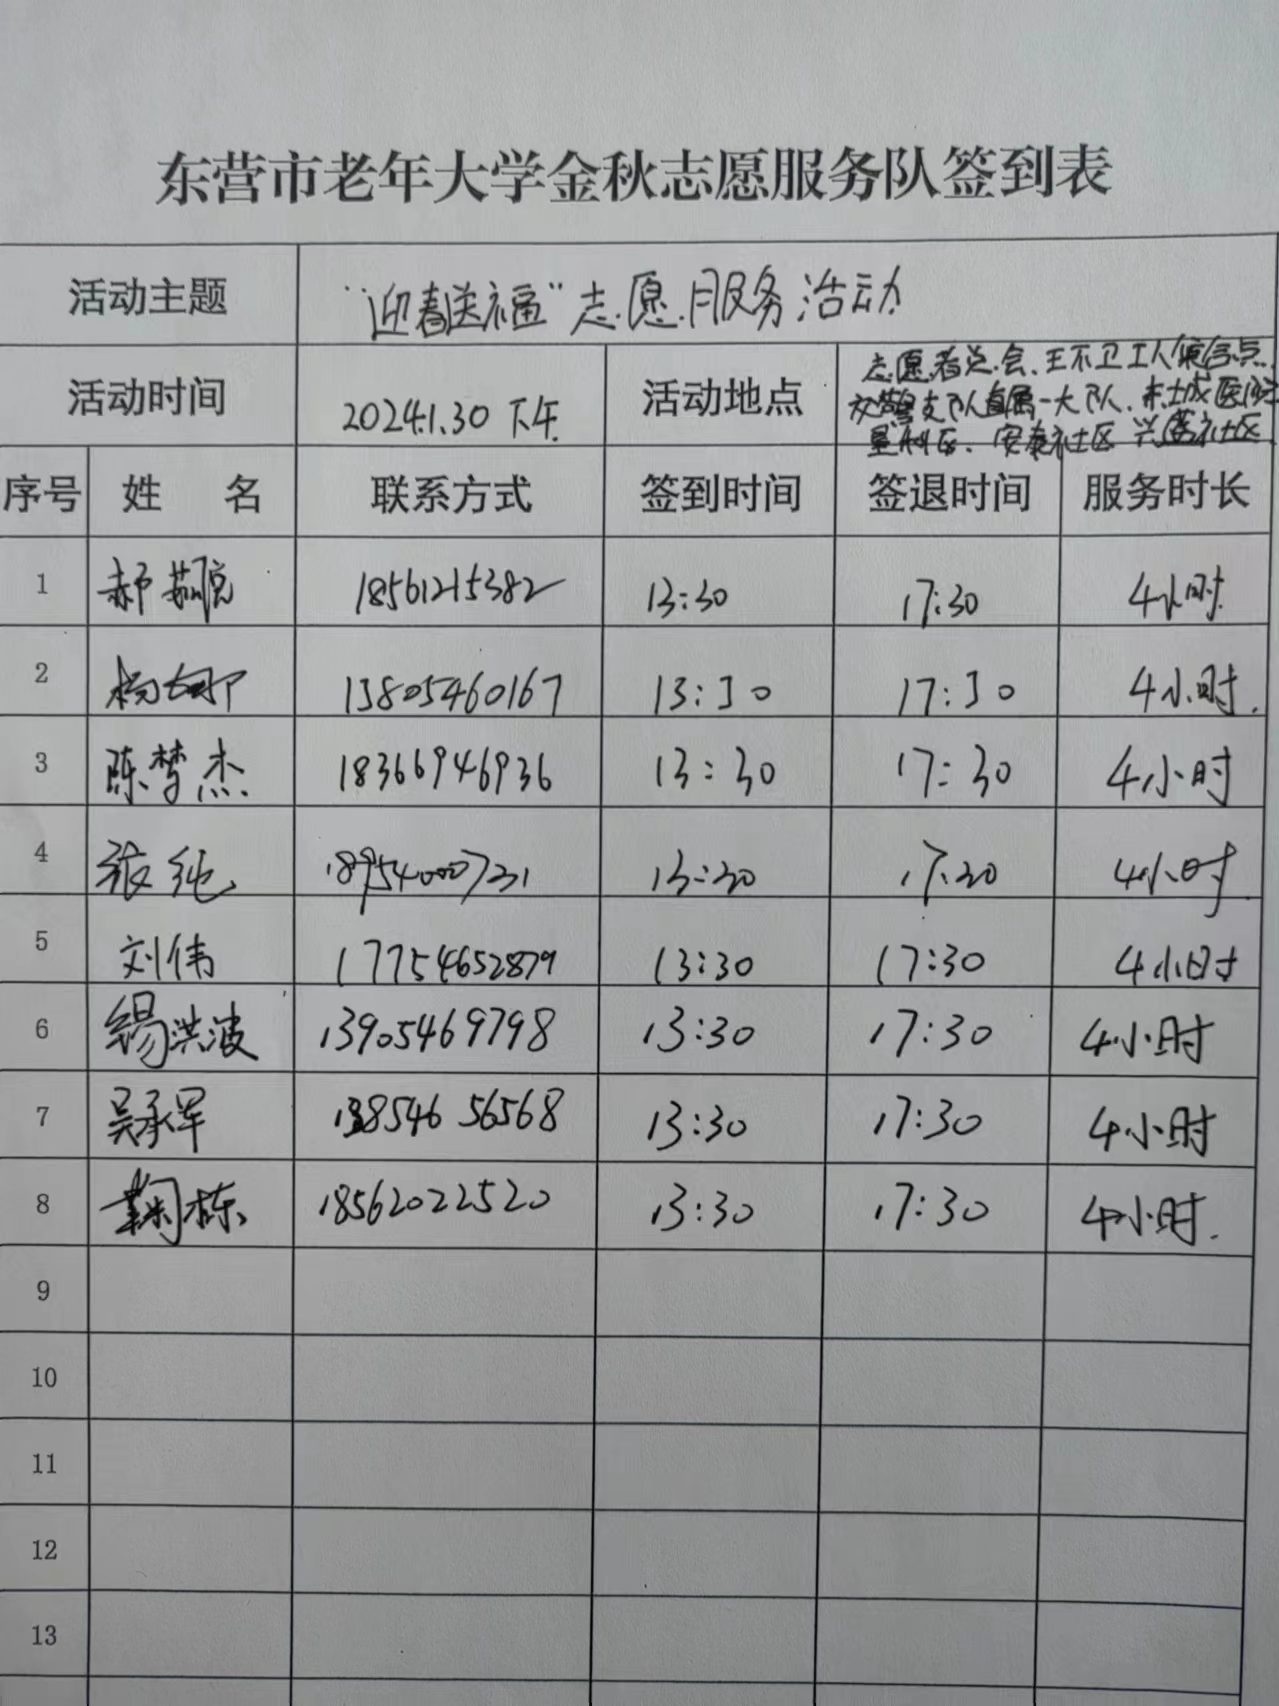 东营市老年大学金秋志愿服务队签到表
活动主题 “迎春送福”志愿服务活动
活动时间 2024.1.30 下午 活动地点 志愿者总会、环卫工人集合点、
交警支队直属一大队、东城医院
星利区、安泰社区 兴盛社区
序号 姓 名 联系方式 签到时间 签退时间 服务时长
1 郝 18561215382 13:30 17:30 4小时
2 杨娜 13805460167 13:30 17:30 4小时.
3 陈梦杰 18366946936 13:30 17:30 4小时
4 张纯 18954000731 13:30 17:30 4小时.
5 刘伟 17754652879 13:30 17:30 4小时
6 洪波 13905469798 13:30 17:30 4小时
7 吴承军 13854656568 13:30 17:30 4小时
8 鞠栋 18562022520 13:30 17:30 4小时.
9
10
11
12
13